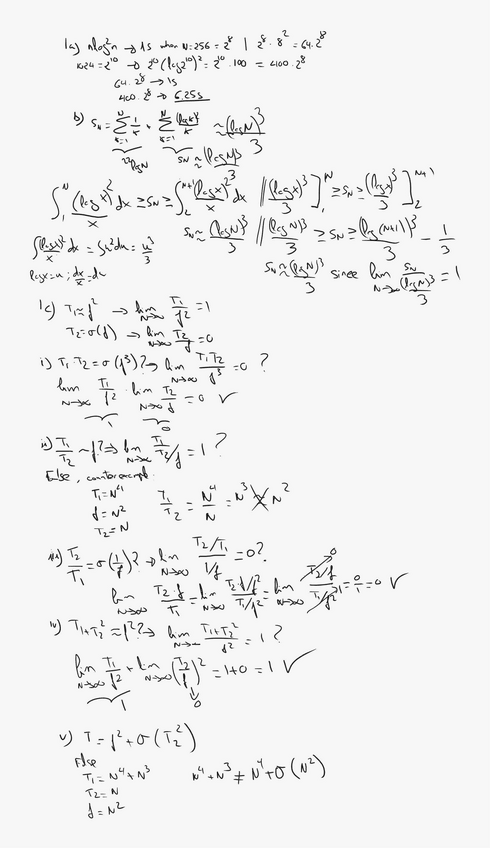 1a) nlog²n → 1s when N=256 = 2⁸ | 2⁸ · 8² = 64.2⁸
1024 = 2¹⁰ → 2¹⁰ (log2¹⁰)² = 2¹⁰ · 100 = 4100 . 2⁸
64. 2⁸ → 1s
400. 2⁸ → 6.25s
b) S_N = ∑_{k=1}^{N} 1/k + ∑_{k=1}^{N} (logk)²/k ≈ (logN)³/3
≈logN S_N ≈ (logN)³/3
∫_1^N (logx)²/x dx ≥ S_N ≥ ∫_2^{N+1} (logx)²/x dx // (logx)³/3 ]_1^N ≥ S_N ≥ (logx)³/3 ]_2^{N+1}
∫ (logx)²/x dx = ∫u²du = u³/3 S_N ≈ (logN)³/3 // (logN)³/3 ≥ S_N ≥ (log(N+1))³/3 - 1/3
logx = u ; dx/x = du S_N ≈ (logN)³/3 since lim_{N→∞} S_N/((logN)³/3) = 1
1c) T₁ ≈ f² → lim_{N→∞} T₁/f² = 1
T₂ = σ(f) → lim_{N→∞} T₂/f = 0
i) T₁ · T₂ = σ(f³)? → lim_{N→∞} T₁T₂/f³ = 0 ?
lim_{N→∞} T₁/f² · lim_{N→∞} T₂/f = 0 ✓
1 0
ii) T₁/T₂ ~ f? ⇒ lim_{N→∞} T₁/T₂/f = 1 ?
Else, counterexampl.
T₁ = N⁴
f = N² T₁/T₂ = N⁴/N = N³ ≁ N²
T₂ = N
iii) T₂/T₁ = σ(1/f)? → lim_{N→∞} T₂/T₁ / 1/f = 0?
lim_{N→∞} T₂·f/T₁ = lim_{N→∞} T₂·f/f² / T₁/f² = lim_{N→∞} T₂/f → 0 / T₁/f² → 1 = 0/1 = 0 ✓
iv) T₁+T₂² ≈ f²? → lim_{N→∞} T₁+T₂²/f² = 1 ?
lim_{N→∞} T₁/f² + lim_{N→∞} (T₂/f)² = 1+0 = 1 ✓
1 0
v) T = f² + σ(T₂²)
Else
T₁ = N⁴ + N³ N⁴ + N³ ≠ N⁴ + σ(N²)
T₂ = N
f = N²